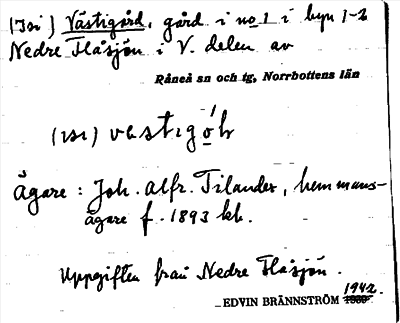 (Isi) Västigård, gård i no 1 i byn 1-2
Nedre Flåsjön i V. delen av
Råneå sn och tg, Norrbottens län
(ısı) vastıgo̲h
Ägare: Joh. Alfr. Tilander, hemmans-
ägare f. 1893 kh.
Uppgiften från Nedre Flåsjön.
1942.
EDVIN BRÄNNSTRÖM